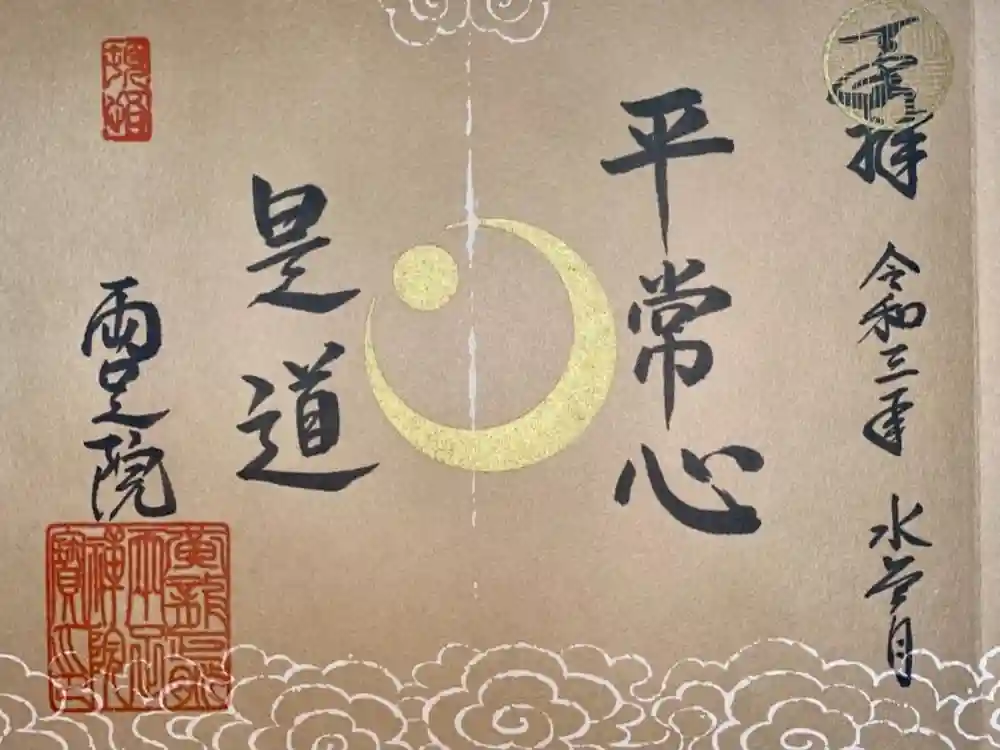 奉拝　令和三年　水無月
平常心
是道
両足院